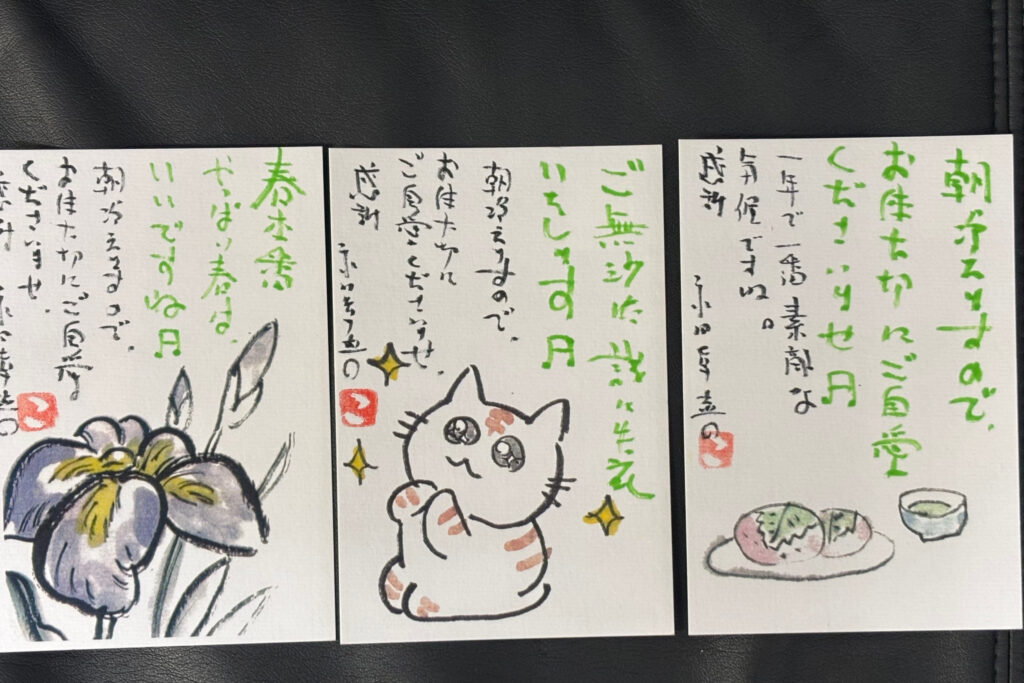 朝冷えますので、
お体大切にご自愛
くださいませ
一年で一番素敵な
気候ですね。
感謝
ご無沙汰誠に失礼
いたします
朝冷えますので、
お体大切に
ご自愛くださいませ。
感謝
春本番
やっぱり春は、
いいですね
朝冷えますので、
お体大切にご自愛
くださいませ。